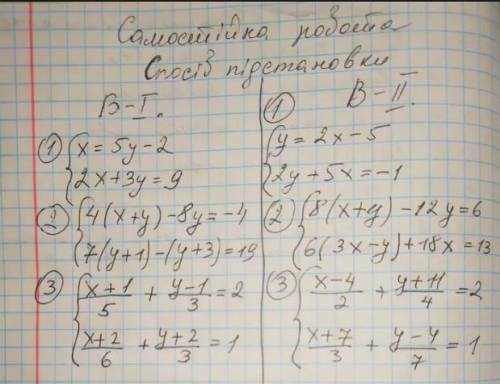 Самостійна робота
Спосіб підстановки
В-I.
① { x = 5y - 2
2x + 3y = 9
② { 4(x+y) - 8y = -4
7(y+1) - (y+3) = 19
③ { \frac{x+1}{5} + \frac{y-1}{3} = 2
\frac{x+2}{6} + \frac{y+2}{3} = 1
① В-II.
{ y = 2x - 5
2y + 5x = -1
② { 8(x+y) - 12y = 6
6(3x-y) + 18x = 13
③ { \frac{x-4}{2} + \frac{y+11}{4} = 2
\frac{x+7}{3} + \frac{y-4}{7} = 1